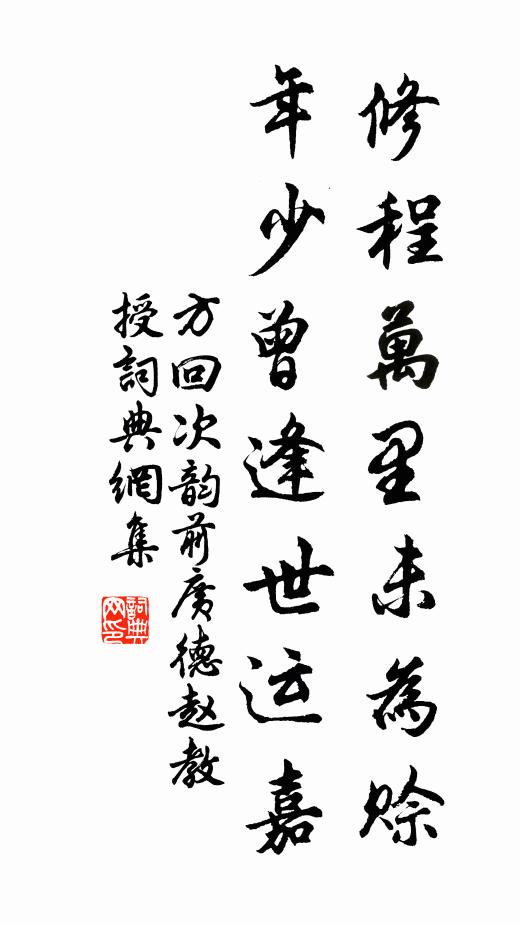 修程萬里未為賒
年少曾逢世运嘉
方回次韵前廣德赵教
授詞典網集
詞典网印